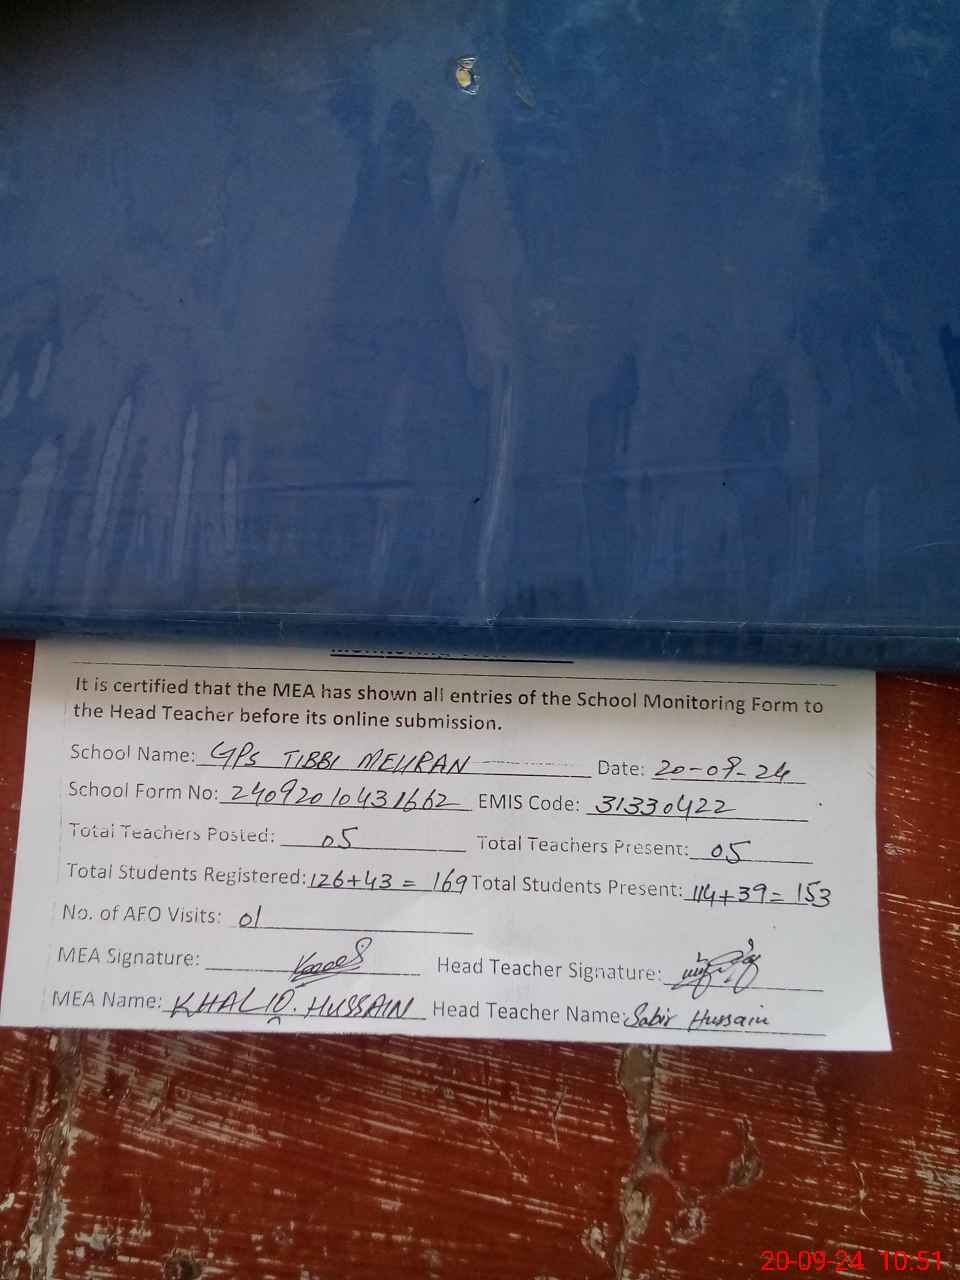 It is certified that the MEA has shown all entries of the School Monitoring Form to
the Head Teacher before its online submission.
School Name: GPS TIBBI MEHRAN Date: 20-09-24
School Form No: 24092010431662 EMIS Code: 31330422
Total Teachers Posted: 05 Total Teachers Present: 05
Total Students Registered: 126+43 = 169 Total Students Present: 114+39 = 153
No. of AEO Visits: 01
MEA Signature: Head Teacher Signature:
MEA Name: KHALIQ. HUSSAIN Head Teacher Name: Sabir Hussain
20-09-24 10:51